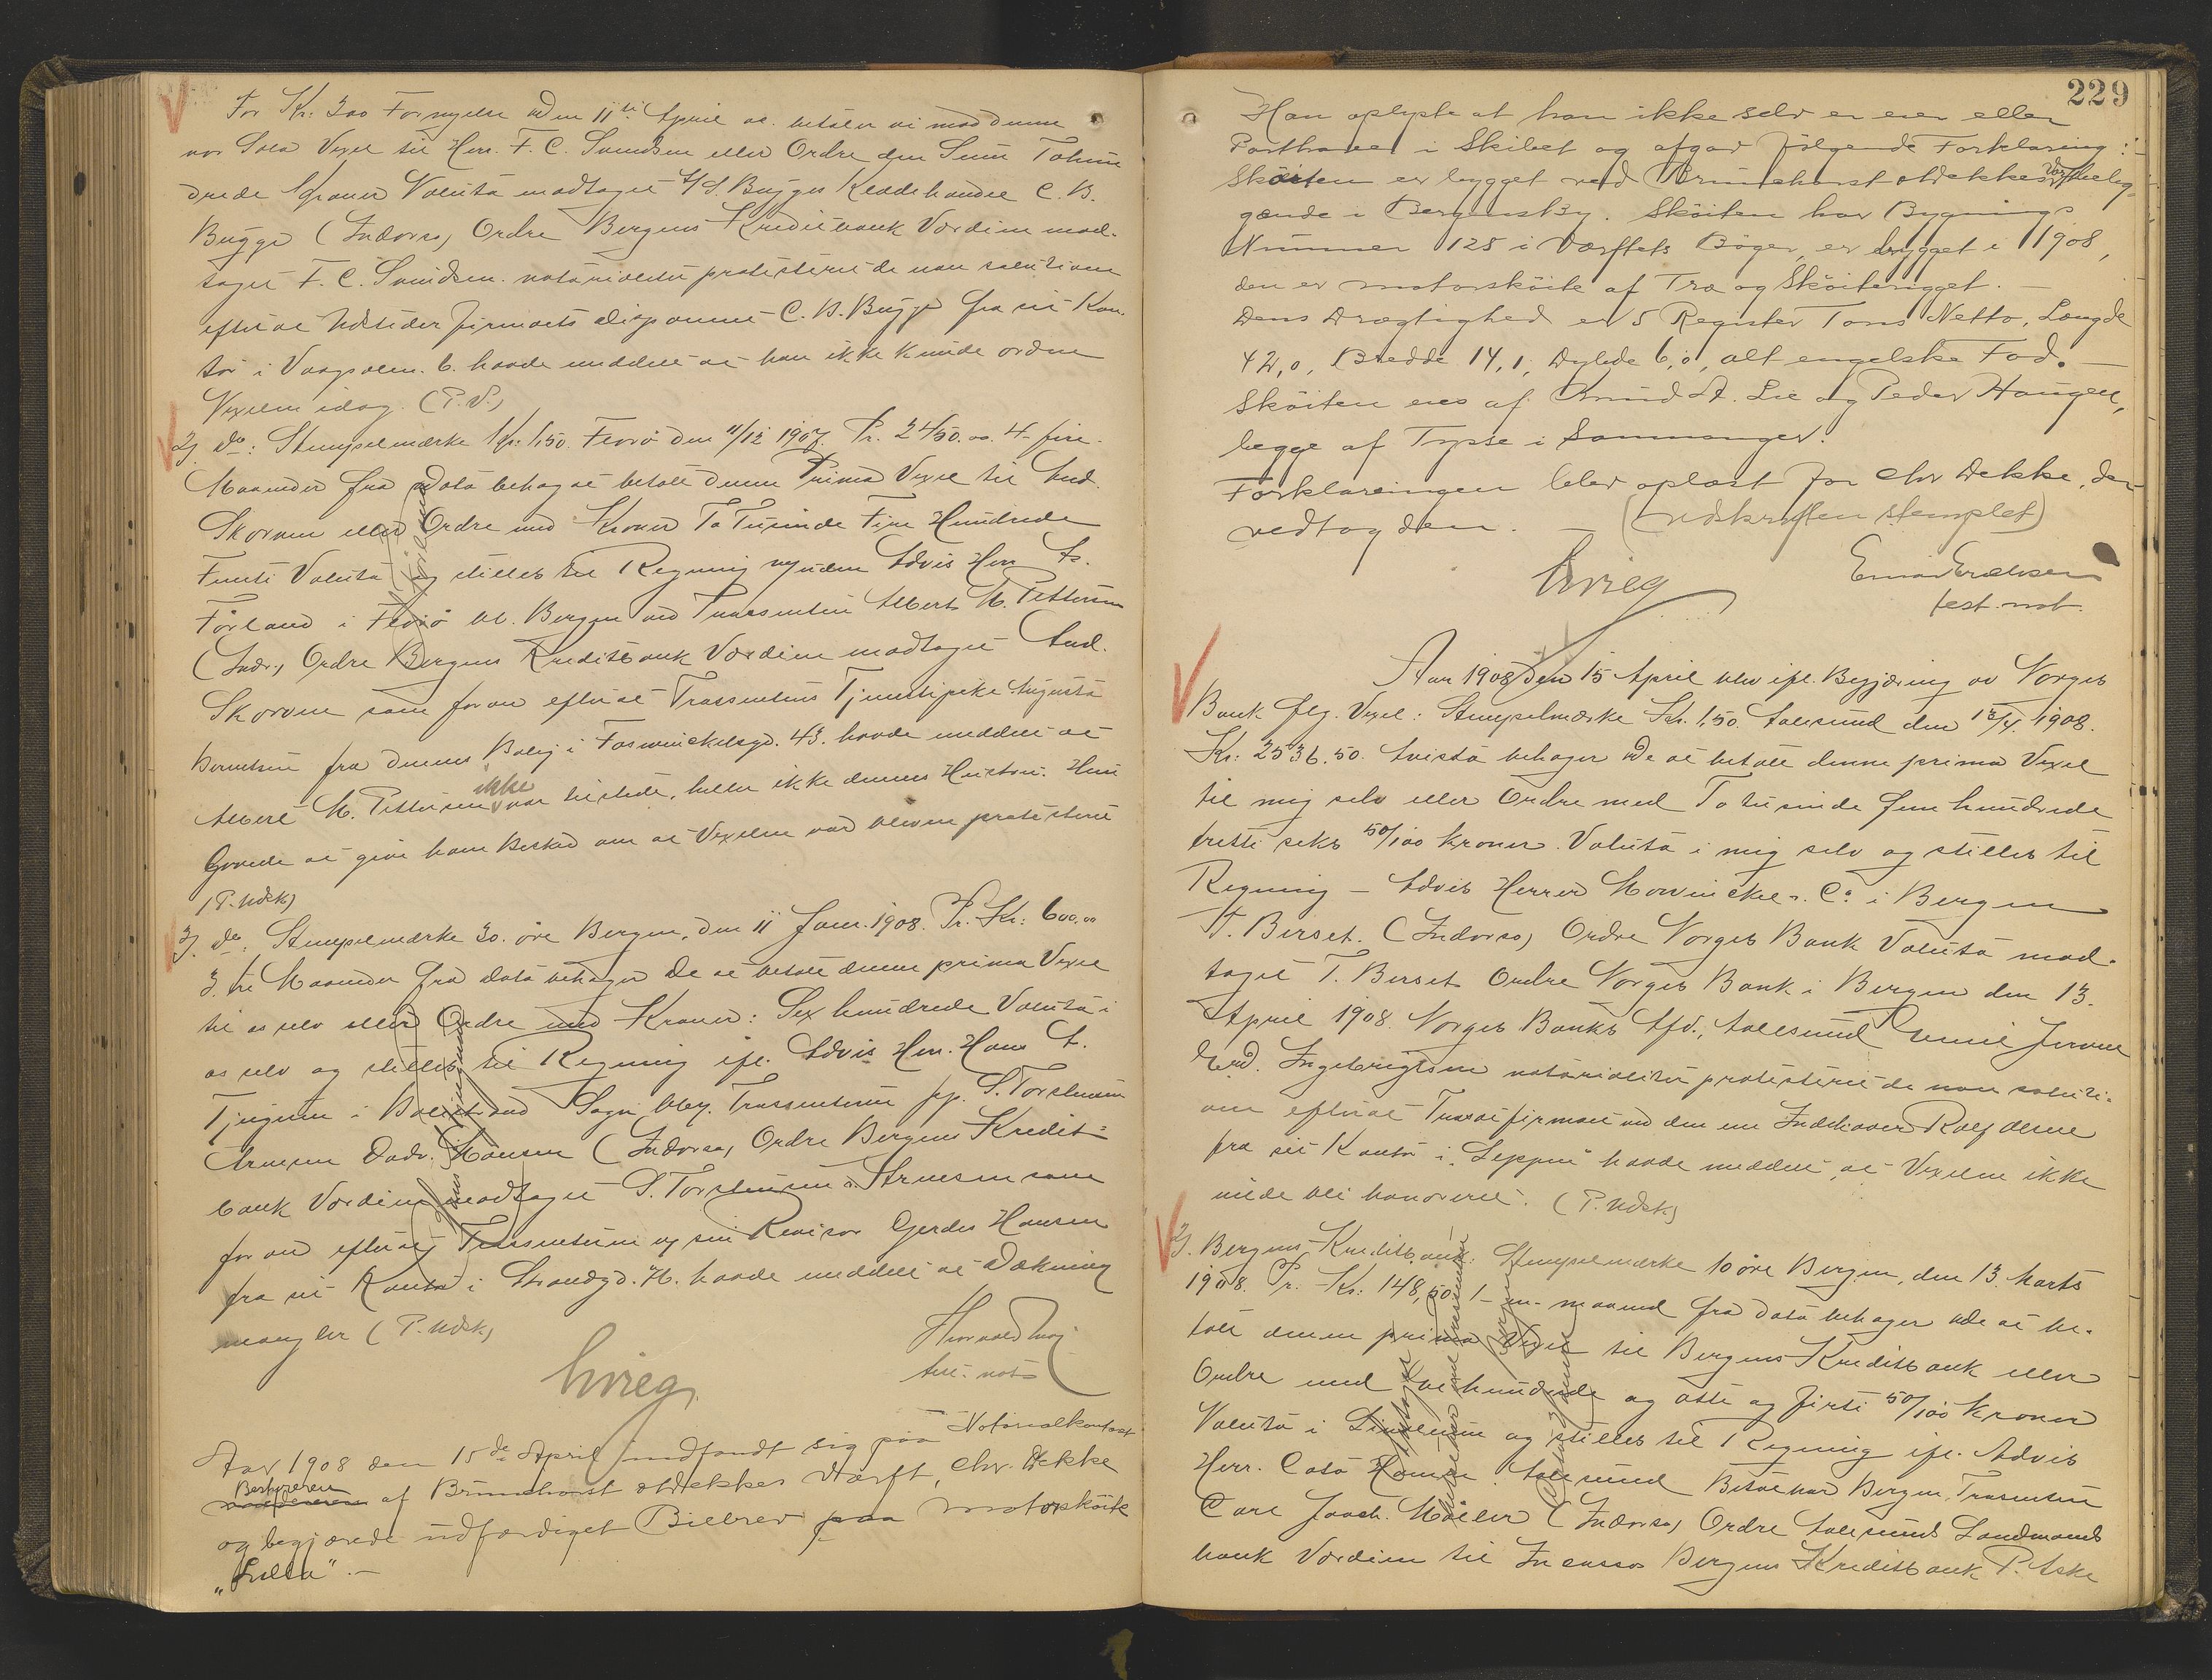 For Kr: 300 Fornyelse den 11te April at. betaler vi mod denne
vor Sola Vexel til Herr. F. C. Svendsen eller Ordre den Sum Tohun
drede Kroner Valuta modtaget A/S. Bugges Klædehandel C. B.
Bugge (Indorso) Ordre Bergens Kreditbank Værdien mod-
taget F. C. Svendsen. notarialiter protesteret de non solutione
efter at Udsteder firmaets disponent C. B. Bugge fra sit Kon-
tor i Vaagsalm. 6. havde meddelt at han ikke kunde ordne
Vexelen idag. (P. U.)
2). do: Stempelmærke Kr: 1.50. Florø den 11/12 1907. Pr. 2450.00. 4- fire.
Maaneder fra Dato behag at betale denne Prima Vexel til And.
Skorven eller Ordre med Kroner To Tusinde Fire Hundrede
Femti Valuta og stilles til Regning uden Advis Herr A.
Førland i Florø bet. Bergen ved Trassenten Albert M. Pettersen
(Indr.) Ordre Bergens Kreditbank Værdien modtaget And.
Skorven som foran efter at Trassentens Tjenestepike Augusta
Berentsen fra dennes Bolig i Foswinckelsgd. 43. havde meddelt at
Albert M. Pettersen ikke var tilstede, heller ikke dennes Hustru. Hun
lovede at give ham Besked om at Vexelen var bleven protesteret
(P. Udsk)
3). do: Stempelmærke 30. øre Bergen, den 11 Janr. 1908. Pr. Kr: 600.00
3. tre Maaneder fra dato behager De at betale denne prima Vexel
til os selv eller Ordre med Kroner: Sex hundrede Valuta i
os selv og stilles til Regning ifl. Advis Herr. Hans A.
Tjugum i Balestrand Sogn Trassenterne pp. S. Torstensen
Arnesen Hansen (Indorso) Ordre Bergens Kredit-
bank Værdien modtaget S. Torstensen & Arnesen som
foran efter at Trassenterne ved sin Revisor Gerdes Hansen
fra sit Kontor i Strandgd. havde meddelt at Dækning
mangler (P. Udsk)
hvieg
not
Aar 1908 den 15de April indfandt sig paa Notarialkontoret
Bestyreren af Brunchorst & Dekkes Værft, Chr. Dekke
og begjærede udfærdiget Bilbrev paa motorskøite
"Lilla".-
229
Han oplyste at han ikke selv er eier eller
Parthaver i Skibet og afgav følgende Forklaring:
Skøiten er bygget ved Brunchorst & Dekkes Værft belig-
gende i Bergensby. Skøiten har Bygnings
Nummer 128 i Værftets Bøger, er bygget i 1908,
den er motorskøite af Træ og Skøiterigget. -
Dens Drægtighed er 5 Register Tons Netto, Længde
42,0, Bredde 14,1, Dybde 6,0, alt engelske Fod.
Skøiten eies af Knud A. Lie og Peder Haugen,
begge af Tysse i Samnanger.
Forklaringen blev oplæst for Chr Dekke, der
vedtog den. - (Udskriften stemplet)
hvieg
Einar Erichsen
test. not.
Aar 1908 den 15 April blev ifl. Begjæring av Norges
Bank flg. Vexel: Stempelmærke Kr. 1.50. Aalesund den 13/4 1908.
Kr: 2536.50. Avista behager De at betale denne prima Vexel
til mig selv eller Ordre med To tusinde fem hundrede
tretti seks 50/100 kroner. Valuta i mig selv og stilles til
Regning - Advis Herrer Mowinckel & Co i Bergen
T. Birset. (Indorso) Ordre Norges Bank Valuta mod-
taget T. Birset Ordre Norges Bank i Bergen den 13.
April 1908. Norges Banks Afd., Aalesund
Ingebrigtsen notarialiter protesteret de non soluti-
one efter at Trassatfirmaet ved den ene Indehaver Rolf Olsen
fra sit Kontor i havde meddelt, at Vexelen ikke
vilde bli honoreret. (P. Udsk)
2). Bergens Kreditbank: Stempelmærke 10 øre Bergen, den 13 Marts
1908. Pr. Kr: 148,50. 1- en- maaned fra dato behager De at be-
tale denne prima Vexel til Bergens Kreditbank eller
Ordre med et hundrede og otte og firti 50/100 Kroner
Valuta i og stilles til Regning ifl. Advis
Herr. Aalesund Betalbar Bergen. Trassenten
Carl Joach. Møller (Indorso) Ordre Aalesunds Landmands
bank Værdien til Incasso Bergens Kreditbank P. Aske